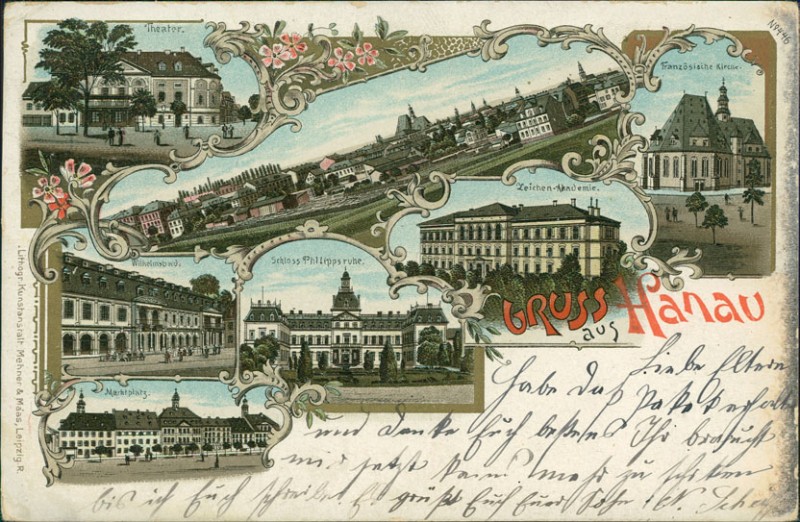 Theater.
No 446
Französische Kirche.
Zeichen-Akademie.
Wilhelmsbad.
Schloss Philippsruhe.
Gruss
aus
Hanau
Marktplatz.
Lithogr. Kunstanstalt Mehner & Maas, Leipzig-R.
Liebe Eltern
habe das Paket erhalten
und danke Euch bestens Ihr braucht
mir jetzt kein mehr zu schicken
bis ich Euch schreibe. Es grüßt Euch Euer Sohn